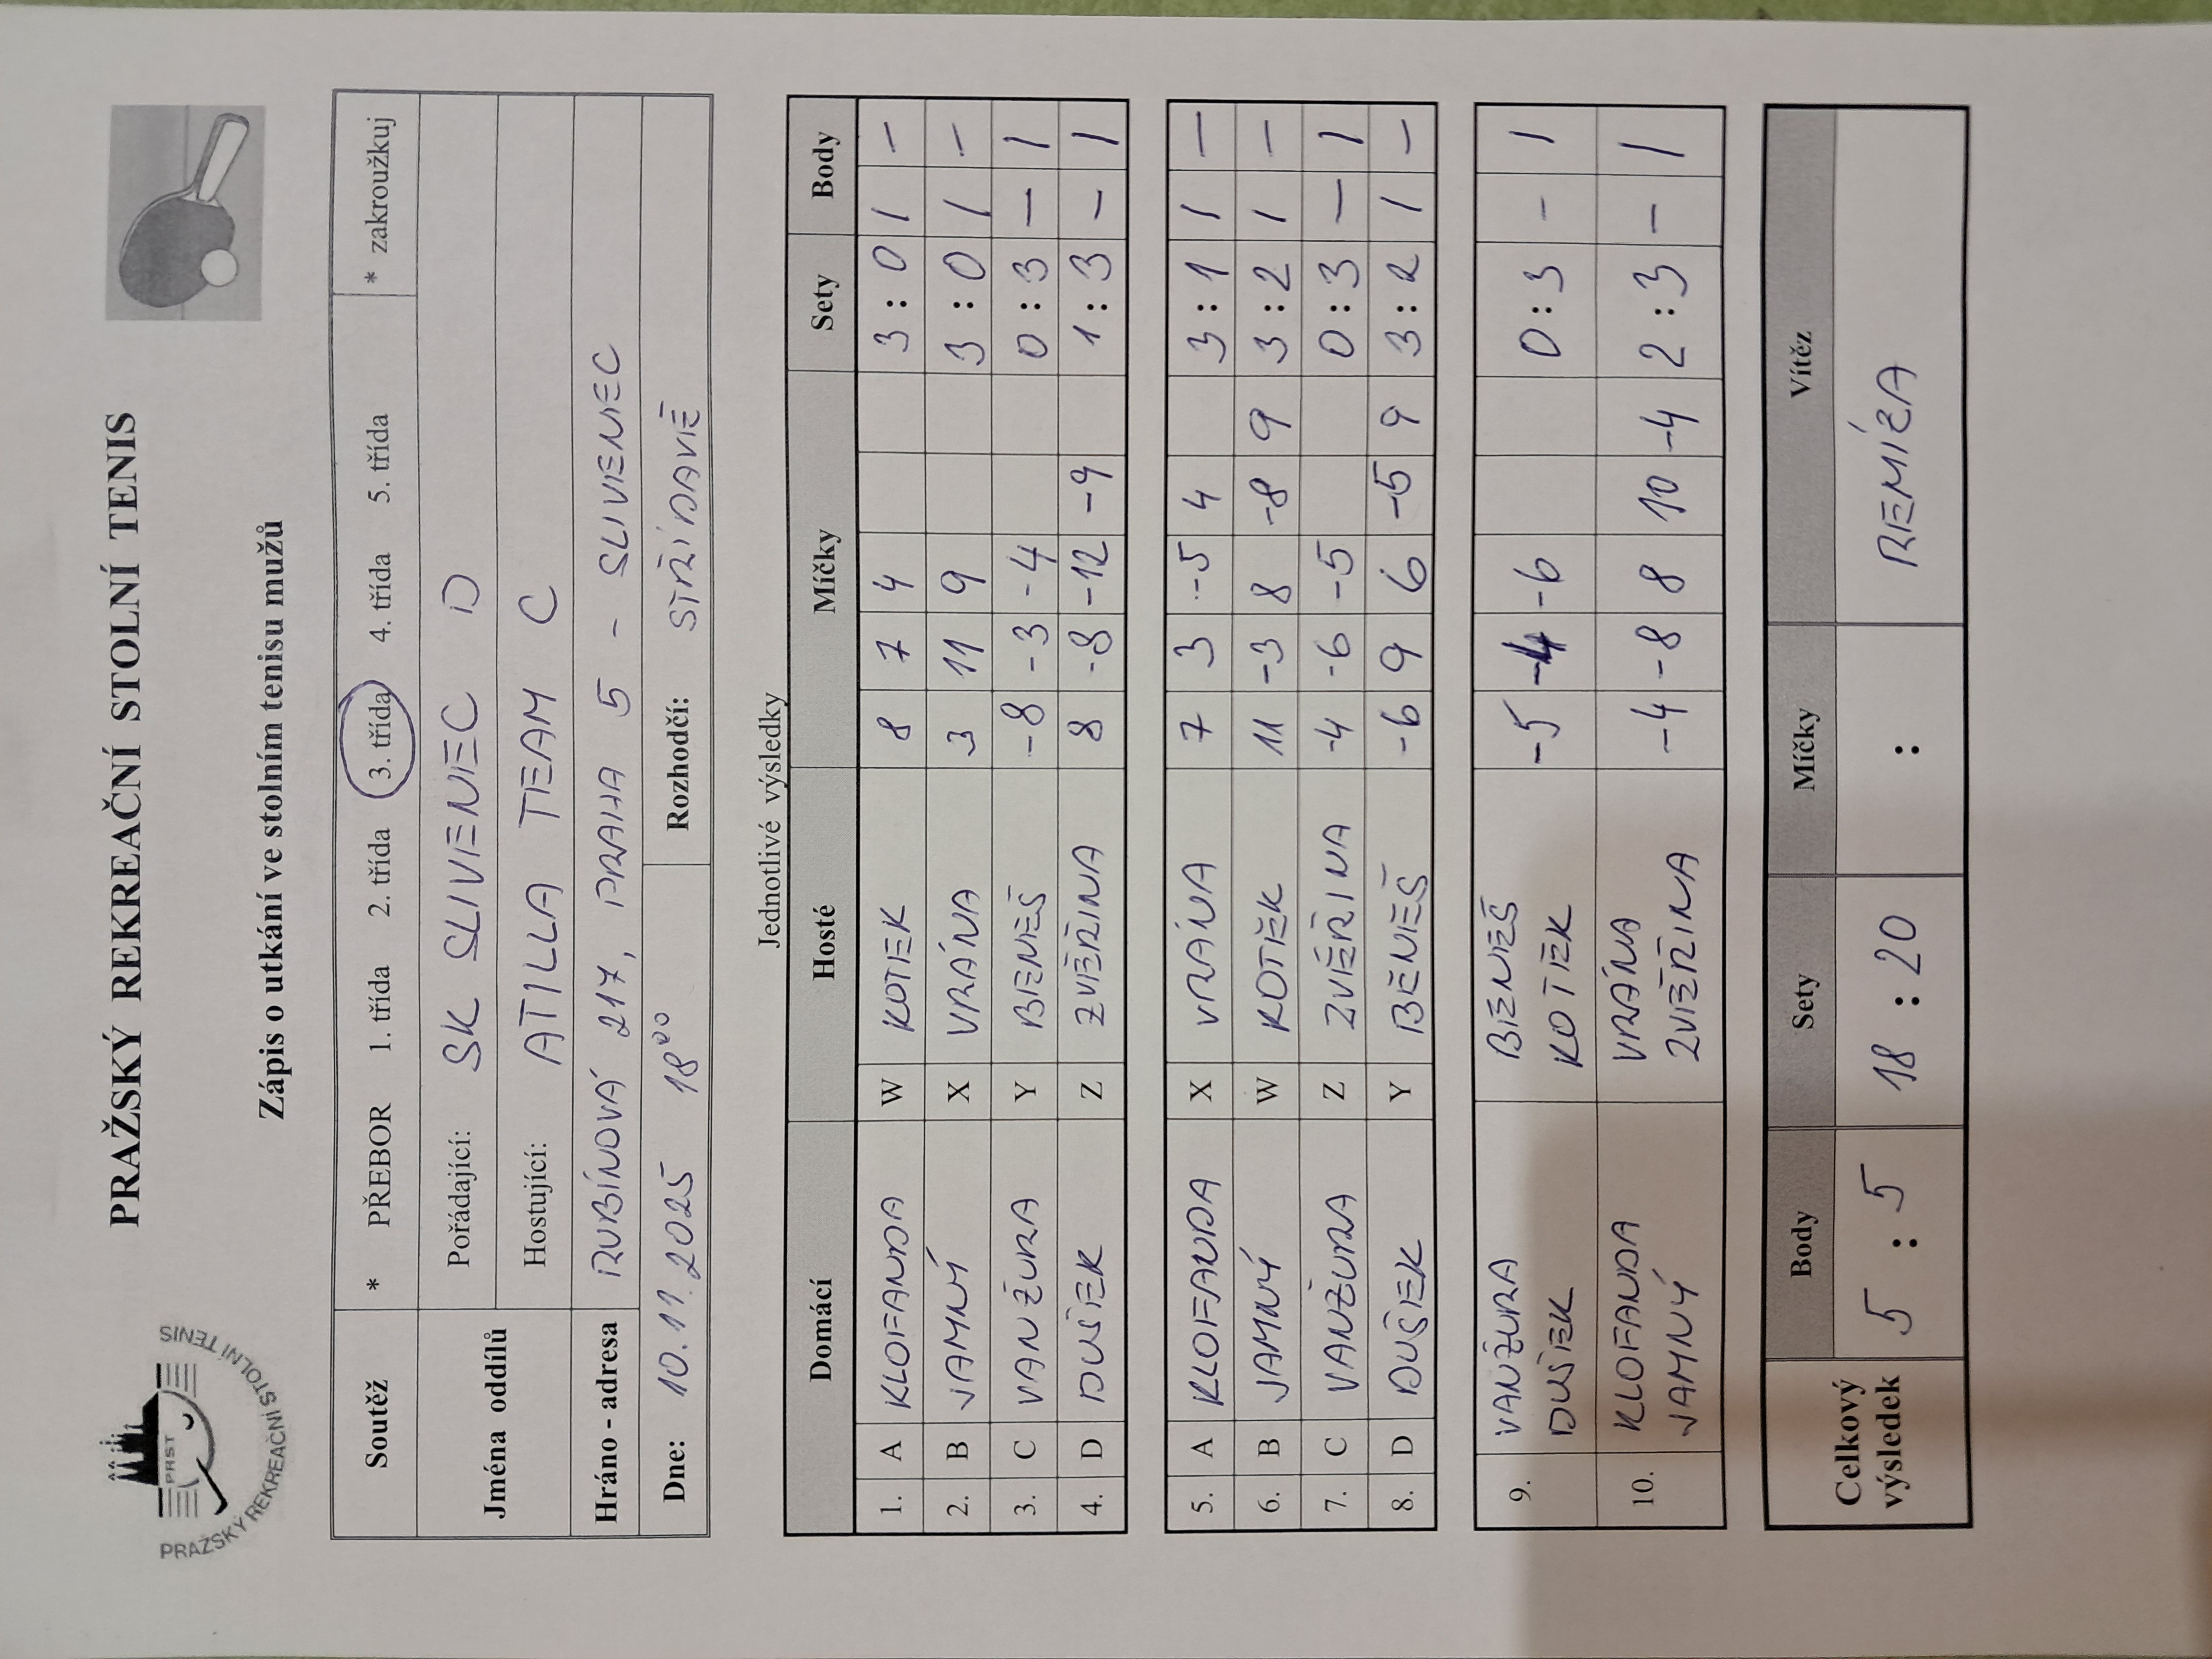 PRAŽSKÝ REKREAČNÍ STOLNÍ TENIS
PRST
PRAŽSKÝ REKREAČNÍ STOLNÍ TENIS
Zápis o utkání ve stolním tenisu mužů
Soutěž * PŘEBOR 1. třída 2. třída 3. třída 4. třída 5. třída * zakroužkuj
Jména oddílů Pořádající: SK SLIVENEC D
Hostující: ATILLA TEAM C
Hráno - adresa RUBÍNOVÁ 217, PRAHA 5 - SLIVENEC
Dne: 10.11.2025 18⁰⁰ Rozhodčí: STŘÍDAVĚ
Jednotlivé výsledky
Domácí Hosté Míčky Sety Body
1. A KLOFANDA W KOTEK 8 7 4 3 : 0 1 -
2. B JAMNÝ X VRÁNA 3 11 9 3 : 0 1 -
3. C VANŽURA Y BENEŠ -8 -3 -4 0 : 3 - 1
4. D DUŠEK Z ZVĚŘINA 8 -8 -12 -9 1 : 3 - 1
5. A KLOFANDA X VRÁNA 7 3 -5 4 3 : 1 1 -
6. B JAMNÝ W KOTEK 11 -3 8 -8 9 3 : 2 1 -
7. C VANŽURA Z ZVĚŘINA -4 -6 -5 0 : 3 - 1
8. D DUŠEK Y BENEŠ -6 9 6 -5 9 3 : 2 1 -
9. VANŽURA BENEŠ -5 -4 -6 0 : 3 - 1
DUŠEK KOTEK
10. KLOFANDA VRÁNA -4 -8 8 10 -4 2 : 3 - 1
JAMNÝ ZVĚŘINA
Celkový výsledek Body Sety Míčky Vítěz
5 : 5 18 : 20 : REMÍZA